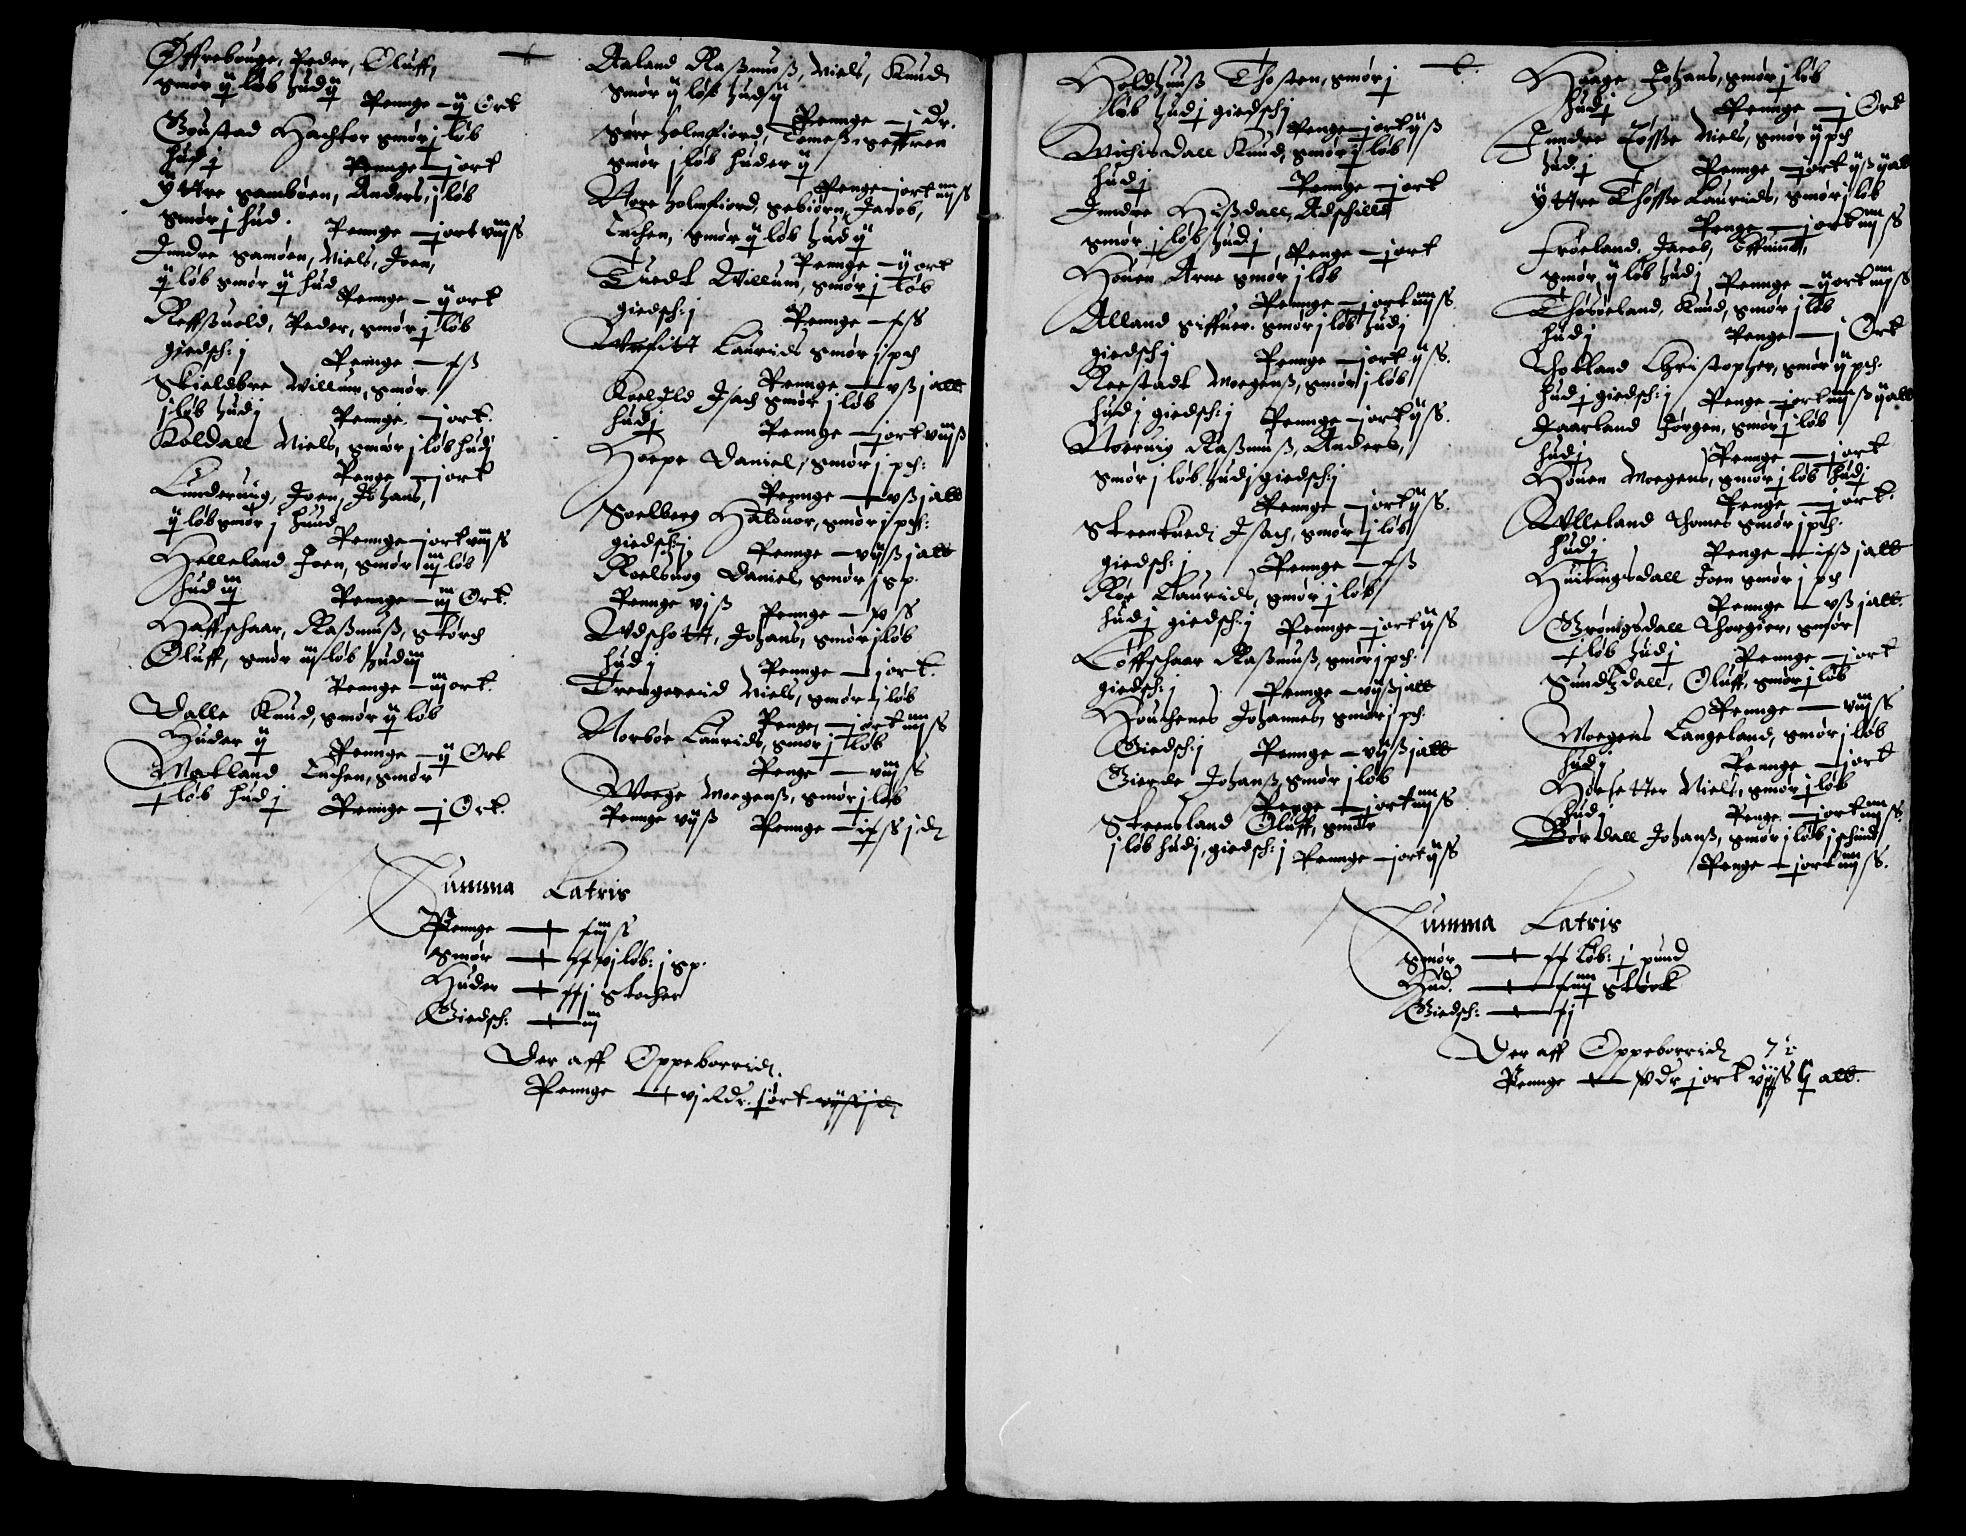 Øffrebouge, Peder, Oluff,
smør ij løb hud ij
Pennge – ij Ort
Boustad Hachtor smør j løb
hud j Pennge – j ort
Yttre samboen, Anders, j løb
smør j hud. Pennge – j ort viij ß
Inndre samoen, Niels, Joen,
ij løb smør ij hud
Pennge – ij ort
Reffßuold, Peder, smør j løb
giedsch: j Pennge – xß
Skieldbre Willum, smør
j løb hud j Pennge – j ort.
Koldall Niels, smør j løb hud j
Penge – j ort
Lunderuig, Joen, Johans,
ij løb smør j huud
Pennge – j ort viij ß
Helleland Joen, smør iij løb
hud iij Pennge – iij Ort.
Haffschaar, Raßmuß, størch
Oluff, smør iij løb hud iij
Pennge – iij ort.
Dalle Knud, smør ij løb
Huder ij Pennge – ij Ort
Matland Inchen, smør
j løb hud j Pennge – j Ort.
Aaland Raßmuß, Niels, Knud
smør ij løb hud ij
Pennge – j Dr.
Søre holmfiord, Tomeß, seffren
smør j løb huder ij
Penge – j ort iiij ß
Nore holmfiord, sebiørn, Jacob,
Inchen, smør ij løb hud ij
Pennge – ij ort
Tuedt Willum, smør j løb
giedsch: j Pennge – xß
Laurids smør j pch
Pennge – vß j alb
Isach smør j løb
hud j Pennge – j ort viij ß
Hope Daniel, smør j pch:
Pennge – vß j alb
Soelberg Halduor, smør j pch:
giedsch j Pennge – vij ß j alb
Roelduog Daniel, smør j sp.
Pennge vj ß Pennge – xv ß
Udschott, Johans, smør j løb
hud j Pennge – j ort.
Trengereid Niels, smør j løb
Penge – j ort iiij ß
Norboe Laurids, smør j løb
Penge – viij ß
Woge Moegenß, smør j løb
Pennge vij ß Pennge – ixß j d
Summa Latris
Pennge – xiij ß
smør – xxvj løb: j sp.
Huder – xxj stocher
Giedsch: – iij
Der aff Oppeborrid.
Pennge – vj Rdr. j ort
Holdhuuß Thosten, smør j
løb hud j giedsch j
Penge – j ort ij ß
Michisdall Knud, smør j løb
hud j Pennge – j ort
Inndre Hißdall, Adschilld
smør j løb hud j, Penge – j ort
Houen Arne smør j løb
Pennge – j ort iiij ß
Alland siffuer. smør j løb hud j
giedsch j Pennge – j ort ij ß.
Reestadt Moegenß, smør j løb
hud j giedsch: j Pennge – j ort ij ß.
Noeruig Raßmuß, Anders,
smør j løb. hud j giedsch: j
Pennge – j ort ij ß.
Steenkued, Isach, smør j løb
giedsch: j Pennge – xß
Røe Laurids, smør j løb
hud j giedsch: j Pennge – j ort ij ß
Løffschaar Raßmuß, smør j pch:
giedsch: j Pennge – vij ß j alb
Houchenes Johannes, smør j pch:
Giedsch: j Pennge – vij ß j alb
Gierde Johanß, smør j løb
Penge – j ort iiij ß
Steensland Oluff, smør
j løb hud j, giedsch: j Pennge – j ort ij ß
Haage Johans, smør j løb
hud j Pennge – j Ort
Inndre Tøsße Niels, smør ij pch
hud j Pennge – j ort ij ß ij alb
Yttre Thøsße Laurids, smør j løb
Pennge – j ort iiij ß
Frøeland, Jacob, Øffuind,
smør ij løb hud j Pennge – ij ort iiij ß
Thøsseland, Knud, smør j løb
hud j Penge – j Ort
Thotland Christopher, smør ij pch.
hud j giedsch: j Penge – j ort iiij ß ij alb
Jaarland Jørgen, smør j løb
hud j Pennge – j ort
Houen Moegens, smør j løb hud j
Penge – j ort.
Ulleland Thomes smør j pch.
hud j Penge – ixß j alb
Huitingsdall Joen smør j pch
Pennge – vß j alb.
Grønigsdall Thorgier, smør
j løb hud j Pennge – j ort
Sundtzdall, Oluff, smør j løb
Pennge – viij ß
Moegens Langeland, smør j løb
hud j Pennge – j ort
Hoesetter Niels, smør j løb
hud j Penge. – j ort iiij ß.
Børdall Johanß, smør j løb j schind
Penge – j ort iiij ß.
Summa Latris
Smør – xx Løb: j pund
Hud. – xiiij størk
Giedsch: – xj
Der aff Oppeborrid
Pennge – xv dr j ort vij ß alb.